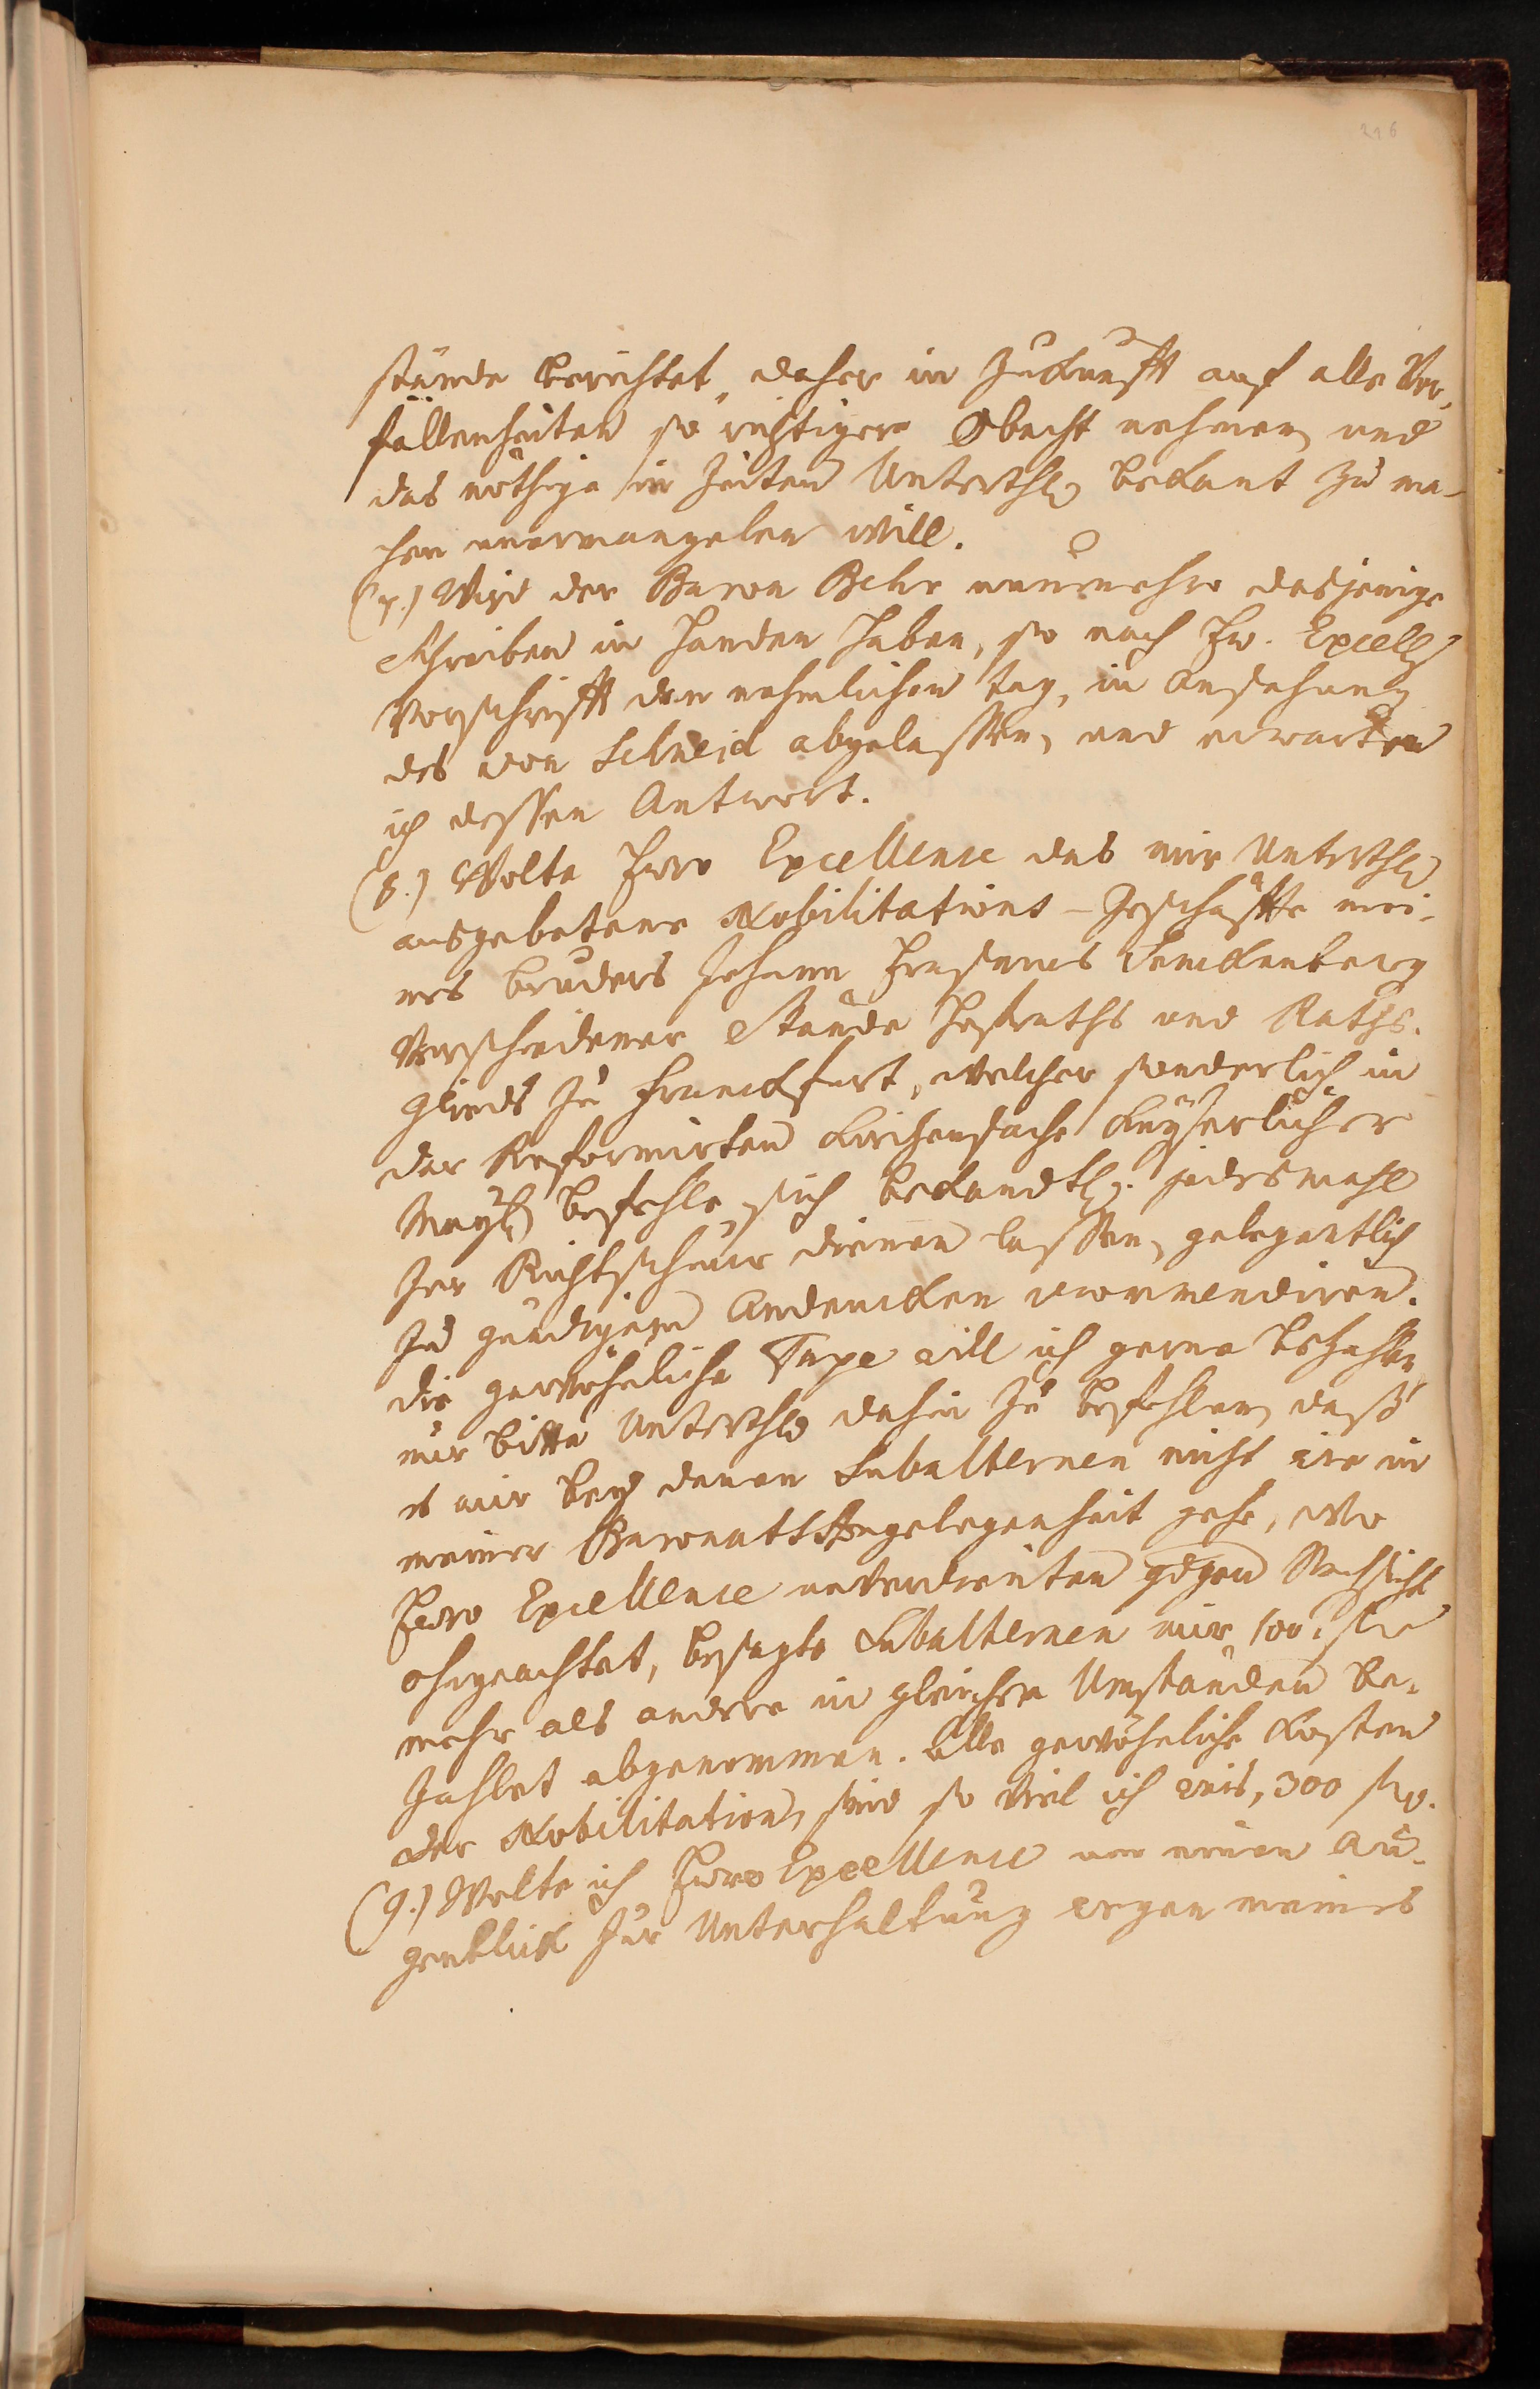 296
stände berichtet, daher in Zukunfft auf alle Vor,
fallenheiten so richtigere Obacht nehmen, und
das nöthige in Zeiten Unterthl. bekant zu ma-
chen unermangelen will.
(7.) Wird der Baron Behr nunmehro dasjenige
Schreiben in Handen haben, so nach Ew. Excell.
Vorschrifft den nehmlichen Tag, in Ansehung
des von Schneid abgelassen, und erwarten
ich dessen Antwort.
(8.) Wolte Ewro Excellence das mir Unterthl.
ausgebetene Nobilitations-Geschäffte mei-
nes Bruders Johann Erasmus Senckenberg
Verschiedener Stände Hofraths und Raths-
Glieds zu Franckfurt, welcher sonderlich in
der Reformirten Kirchensache Kayserlicher
Mayt. Befehle, sich bekandtl. jedesmahl
zur Richtschnur dienen lassen, gelegentlich
zu gnädigem Andencken recommendiren.
die gewöhnliche Taxe will ich gerne bezahlen
nur bitte Unterthl. dahin zu befehlen, daß
es mir bey denen Subalternen nicht wie in
meiner Baronats Angelegenheit gehe, wo
Ewro Excellence unverdienten gdgen Nachsicht
ohngeachtet, besagte Subalternen mir 100. fl.
mehr als andere in gleichen Umständen be-
zahlet abgenommen. Alle gewöhnliche Kosten
der Nobilitation, sind so viel ich weis, 300 fl.
(9.) Wolte ich Ewro Excellence um einen Au-
genblick zur Unterhaltung wegen meines